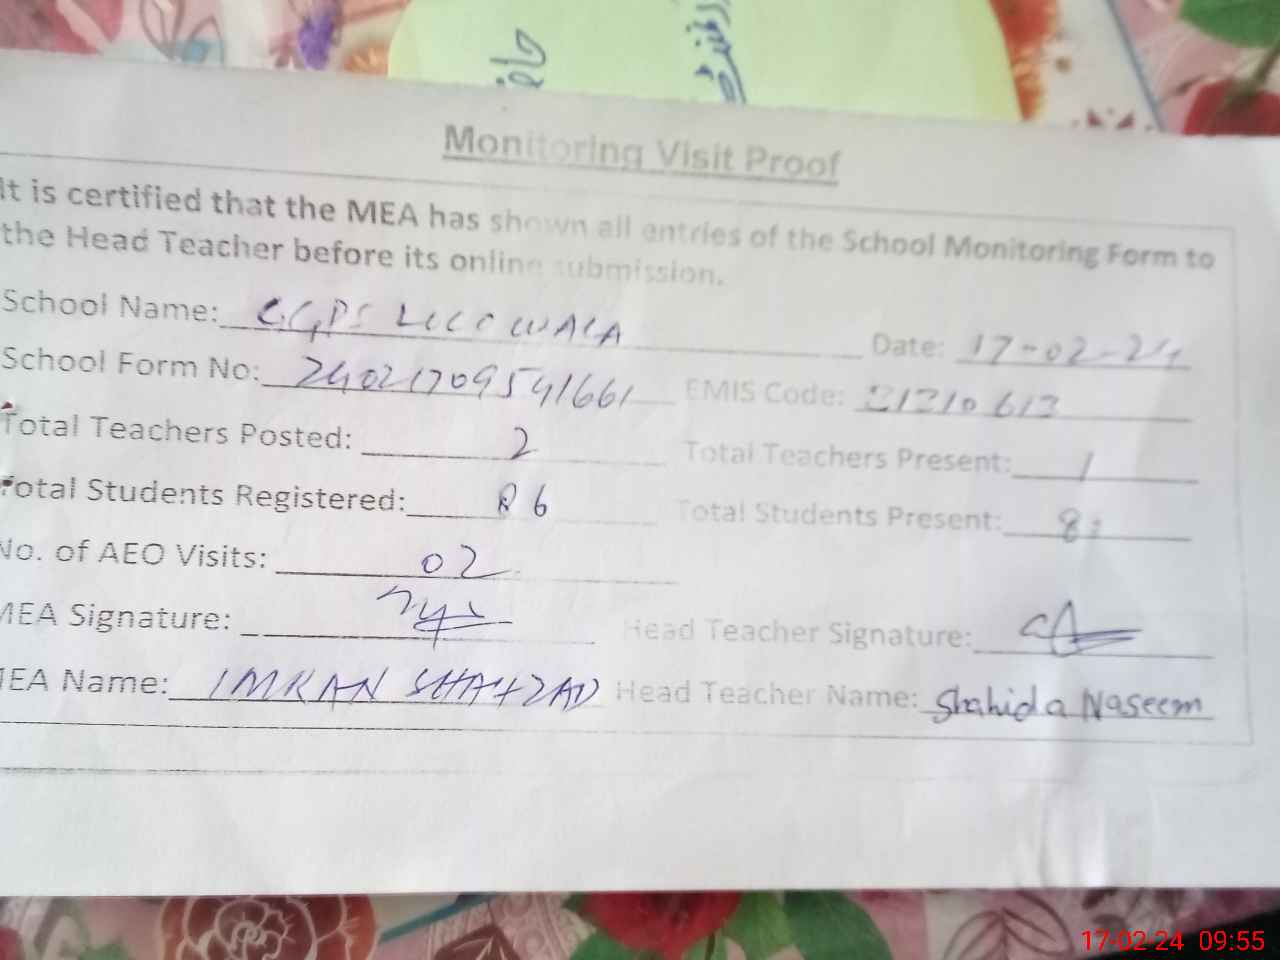 Monitoring Visit Proof
It is certified that the MEA has shown all entries of the School Monitoring Form to
the Head Teacher before its online submission.
School Name: GGPS Date: 17-02-24
School Form No: 24021709541661 EMIS Code:
Total Teachers Posted: 2 Total Teachers Present: 1
Total Students Registered: 86 Total Students Present:
No. of AEO Visits: 02
MEA Signature: Head Teacher Signature:
MEA Name: IMRAN SHAHZAD Head Teacher Name: Shahida Naseem
17-02-24 09:55